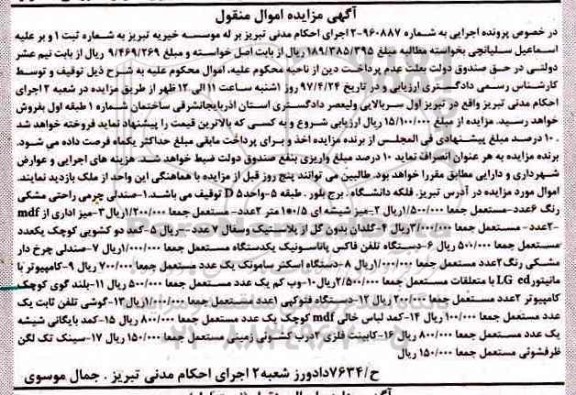 آگهی مزایده اموال منقول
در خصوص پرونده اجرایی به شماره ۹۶۰۸۸۷-۲ اجرای احکام مدنی تبریز بر له موسسه خیریه تبریز به شماره ثبت ۱ و بر علیه
اسماعیل سلیانچی بخواسته مطالبه مبلغ ۱۸۹/۳۸۵/۳۹۵ ریال از بابت اصل خواسته و مبلغ ۹/۴۶۹/۲۶۹ ریال از بابت نیم عشر
دولتی در حق صندوق دولت بعلت عدم پرداخت دین از ناحیه محکوم علیه، اموال محکوم علیه به شرح ذیل توقیف و توسط
کارشناس رسمی دادگستری ارزیابی و در تاریخ ۹۷/۴/۲۴ روز ۱شنبه ساعت ۱۱ الی ۱۲ ظهر از طریق مزایده در شعبه ۲ اجرای
احکام مدنی تبریز واقع در تبریز اول سربالایی ولیعصر دادگستری استان اذربایجانشرقی ساختمان شماره ۱ طبقه اول بفروش
خواهد رسید. مزایده از مبلغ ۱۵/۱۰۰/۰۰۰ ریال ارزیابی شروع و به کسی که بالاترین قیمت را پیشنهاد نماید فروخته خواهد شد
. ۱۰ درصد مبلغ پیشنهادی فی المجلس از برنده مزایده اخذ و برای پرداخت مابقی مبلغ حداکثر یکماه فرصت داده می شود.
برنده مزایده به هر عنوان انصراف نماید ۱۰ درصد مبلغ واریزی بنفع صندوق دولت ضبط خواهد شد. هزینه های اجرایی و عوارض
شهرداری و دارایی مطابق مقررا خواهد بود. طالبین می توانند پنج روز قبل از مزایده با هماهنگی این واحد از ملک بازدید نمایند.
اموال مورد مزایده در آدرس تبریز. فلکه دانشگاه. برج بلور. طبقه ۵-واحد D۵ توقیف می باشد.۱-صندلی چرمی راحتی مشکی
رنگ ۶عدد-مستعمل جمعا ۱/۵۰۰/۰۰۰ریال ۲-میز شیشه ای ۱۰۵/۵متر ۲عدد-مستعمل جمعا ۱/۲۰۰/۰۰۰ریال ۳-میز اداری از mdf
-۲عدد-مستعمل جمعا ۳/۰۰۰/۰۰۰ریال ۴-گلدان بدون گل از پلاستیک وسفال ۷ عدد---ریال ۵-کمد دو کشویی کوچک یکعدد
مستعمل جمعا ۵۰۰/۰۰۰ ریال ۶-دستگاه تلفن فاکس پاناسونیک یکدستگاه مستعمل جمعا ۱/۰۰۰/۰۰۰ریال ۷-صندلی چرخ دار
مشکی رنگ ۲عدد مستعمل جمعا ۱/۰۰۰/۰۰۰ریال ۸-دستگاه اسکنر سامونک یک عدد مستعمل جمعا ۷۰۰/۰۰۰ ریال ۹-کامپیوتر با
مانیتور LG ed با متعلقات مستعمل جمعا ۲/۵۰۰/۰۰۰ریال ۱۰-وب کم یک عدد مستعمل جمعا ۵۰۰/۰۰۰ ریال ۱۱-بلند گوی کوچک
کامپیوتر ۲عدد مستعمل جمعا ۲۰۰/۰۰۰ ریال ۱۲-دستگاه فتوکپی ۱عدد مستعمل جمعا ۱/۰۰۰/۰۰۰ریال۱۳-گوشی تلفن ثابت یک
عدد مستعمل جمعا ۱۰۰/۰۰۰ ریال ۱۴-کمد لباس خالی mdf کوچک یک عدد مستعمل جمعا ۸۰۰/۰۰۰ ریال ۱۵-کمد بایگانی شیشه
یک عدد مستعمل جمعا ۸۰۰/۰۰۰ ریال ۱۶-کابینت فلزی ۲درب کشوئی زمینی مستعمل جمعا ۱۵۰/۰۰۰ ریال ۱۷-سینک تک لگن
ظرفشوئی مستعمل جمعا ۱۵۰/۰۰۰ ریال
ح/۷۶۳۴دادورز شعبه ۲ اجرای احکام مدنی تبریز . جمال موسوی